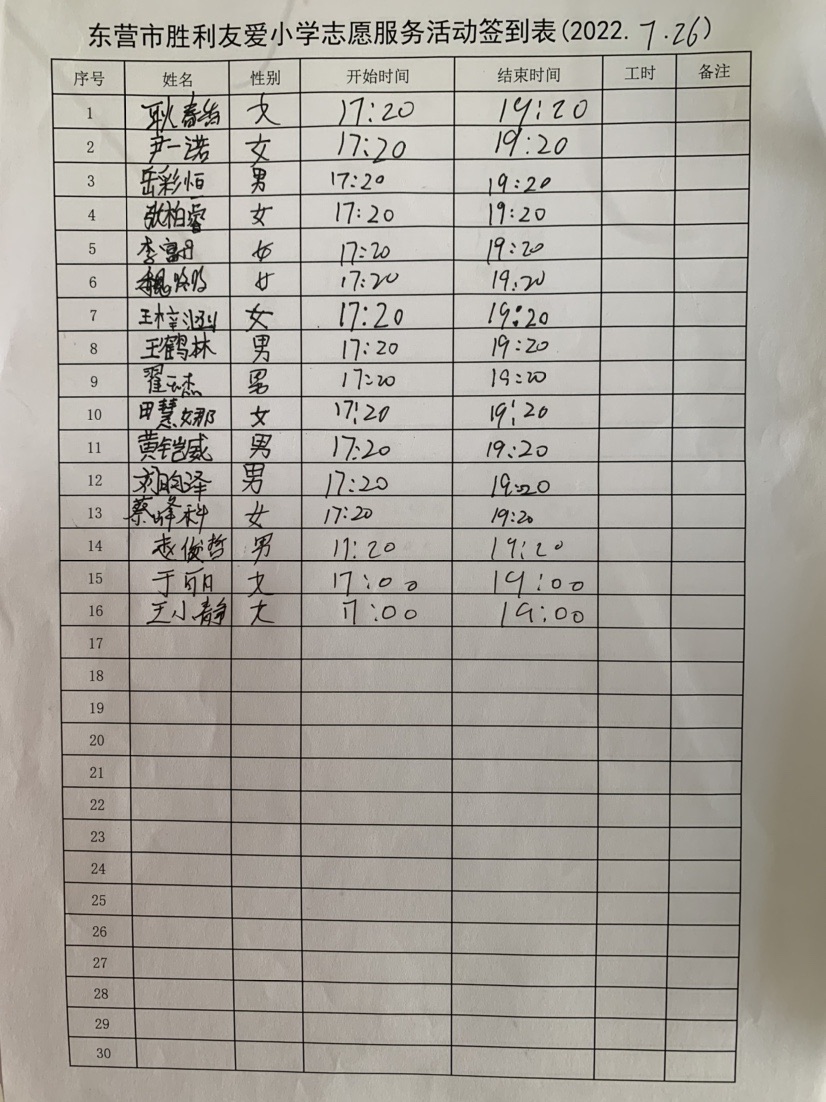 东营市胜利友爱小学志愿服务活动签到表(2022.7.26)
序号 姓名 性别 开始时间 结束时间 工时 备注
1 耿 女 17:20 19:20
2 尹一诺 女 17:20 19:20
3 岳彩恒 男 17:20 19:20
4 张柏睿 女 17:20 19:20
5 李 女 17:20 19:20
6 魏 女 17:20 19:20
7 王梓涵 女 17:20 19:20
8 王鹤林 男 17:20 19:20
9 翟云杰 男 17:20 19:20
10 田慧娜 女 17:20 19:20
11 黄铠威 男 17:20 19:20
12 刘昀泽 男 17:20 19:20
13 蔡峰科 女 17:20 19:20
14 赵俊哲 男 17:20 19:20
15 于丽 女 17:00 19:00
16 王小静 女 17:00 19:00
17
18
19
20
21
22
23
24
25
26
27
28
29
30